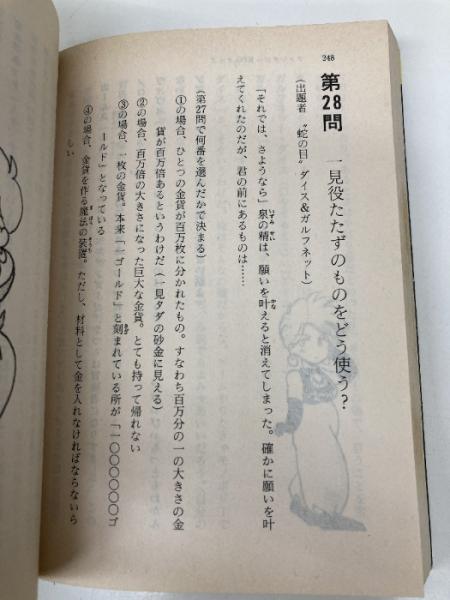 248
第28問 一見役たたずのものをどう使う?
(出題者 〝蛇の目〟ダイス&ガルフネット)
「それでは、さようなら」泉の精は、願いを叶えると消えてしまった。確かに願いを叶
えてくれたのだが、君の前にあるものは……
(第27問で何番を選んだかで決まる)
①の場合、ひとつの金貨が百万枚に分かれたもの。すなわち百万分の一の大きさの金
貨が百万倍あるというわけだ(一見タダの砂金に見える)
②の場合、百万倍の大きさになった巨大な金貨。とても持って帰れない
③の場合、一枚の金貨。本来「一ゴールド」と刻まれている所が「一〇〇〇〇〇〇ゴ
ールド」となっている
④の場合、金貨を作る魔法の装置。ただし、材料として金を入れなければならないら
しい